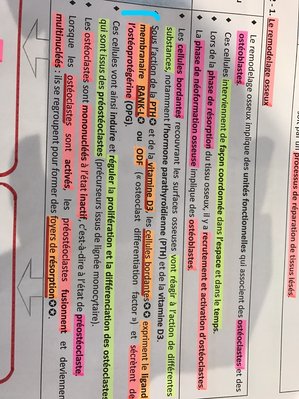 par un processus de réparation de tissus lésés.
Le remodelage osseux
Le remodelage osseux implique des unités fonctionnelles qui associent des ostéoclastes et des
ostéoblastes.
Ces cellules interviennent de façon coordonnée dans l'espace et dans le temps.
Lors de la phase de résorption du tissu osseux, il y a recrutement et activation d'ostéoclastes.
La phase de néoformation osseuse implique des ostéoblastes.
Les cellules bordantes recouvrant les surfaces osseuses vont réagir à l'action de différentes
substances, notamment l'hormone parathyroïdienne (PTH) et de la vitamine D3.
Sous l'action de la PTH et de la vitamine D3, les cellules bordantes expriment le ligand
membranaire RANK-L ou ODF (« osteoclast differentiation factor ») et sécrètent de
l'ostéoprotégérine (OPG).
Ces cellules vont ainsi induire et réguler la prolifération et la différenciation des ostéoclastes
qui sont issus des préostéoclastes (précurseurs issus de lignée monocytaire).
Les ostéoclastes sont mononucléés à l'état inactif, c'est-à-dire à l'état de préostéoclaste.
Lorsque les ostéoclastes sont activés, les préostéoclastes fusionnent et deviennent
multinucléés : ils se regroupent pour former des foyers de résorption